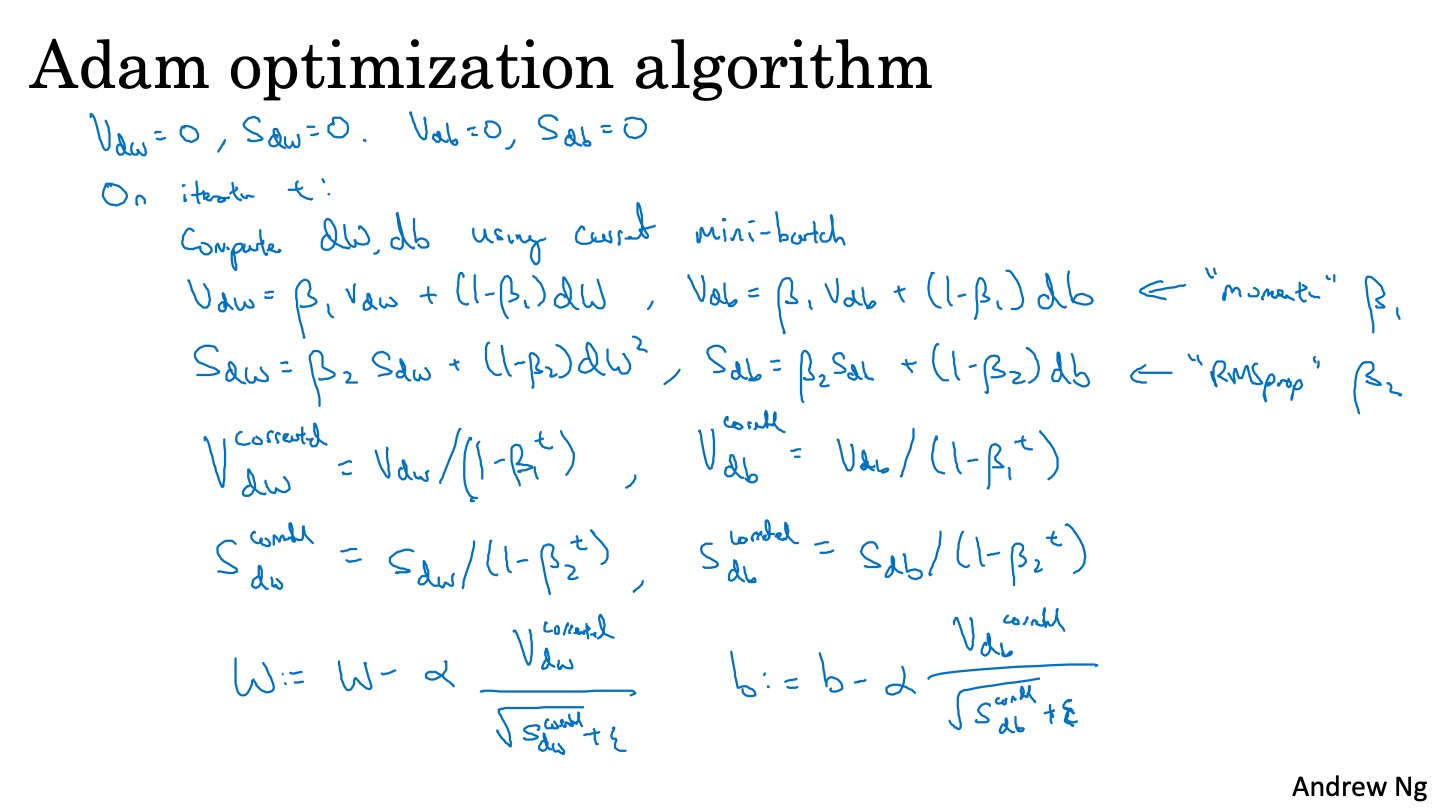 Adam optimization algorithm
V_dw = 0, S_dw = 0. V_db = 0, S_db = 0
On iteratn t:
Compute dW, db using current mini-batch
V_dw = β₁ V_dw + (1-β₁) dW, V_db = β₁ V_db + (1-β₁) db ← "momentum" β₁
S_dw = β₂ S_dw + (1-β₂) dW², S_db = β₂ S_db + (1-β₂) db ← "RMSprop" β₂
V_dw^corrected = V_dw/(1-β₁^t), V_db^corrected = V_db/(1-β₁^t)
S_dw^corrected = S_dw/(1-β₂^t), S_db^corrected = S_db/(1-β₂^t)
W := W - α V_dw^corrected / (√S_dw^corrected + ε) b := b - α V_db^corrected / (√S_db^corrected + ε)
Andrew Ng